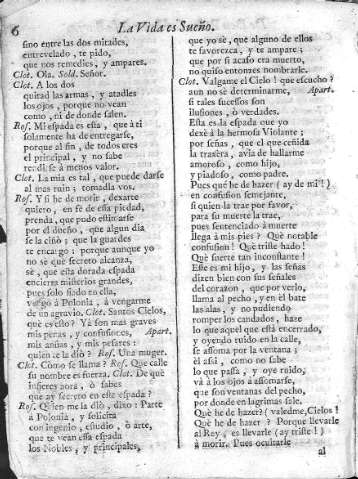 6
La Vida es Sueño.
sino entre las dos mitades,
entrevelado, te pido,
que nos remedies, y ampares.
Clot. Ola. Sold. Señor.
Clot. A los dos
quitad las armas, y atadles
los ojos, porque no vean
como, ni de donde salen.
Ros. Mi espada es esta, que à ti
solamente ha de entregarse,
porque al fin, de todos eres
el principal, y no sabe
rendirse à menos valor.
Clot. La mia es tal, que puede darse
al mas ruin; tomadla vos.
Ros. Y si he de morir, dexarte
quiero, en fè de esta piedad,
prenda, que pudo estimarse
por el dueño, que algun dia
se la ciñò; que la guardes
te encargo; porque aunque yo
no sè que secreto alcanza,
sè, que esta dorada espada
encierra misterios grandes,
pues solo fiado en ella,
vengo à Polonia, à vengarme
de un agravio. Clot. Santos Cielos,
què es esto? Yà son mas graves
mis penas, y confusiones, Apart.
mis ansias, y mis pesares:
quien te la diò? Ros. Una muger.
Clot. Como se llama? Ros. Que calle
su nombre es fuerza. Clot. De què
infieres aora, ò sabes
que ay secreto en esta espada?
Ros. Quien me la diò, dixo: Parte
à Polonia, y solicita
con ingenio, estudio, ò arte,
que te vean essa espada
los Nobles, y principales,
que yo sè, que alguno de ellos
te favorezca, y te ampare;
que por si acaso era muerto,
no quiso entonces nombrarle.
Clot. Valgame el Cielo! que escucho?
aun no sè determinarme, Apart.
si tales sucessos son
ilusiones, ò verdades.
Esta es la espada que yo
dexè à la hermosa Violante;
por señas, que el que ceñida
la traxera, avia de hallarme
amoroso, como hijo,
y piadoso, como padre.
Pues què he de hazer (ay de mi!)
en confusion semejante,
si quien la trae por favor,
para su muerte la trae,
pues sentenciado à muerte
llega à mis pies? Què notable
confusion! Què triste hado!
Què suerte tan inconstante!
Este es mi hijo, y las señas
dizen bien con sus señales
del corazon, que por verlo,
llama al pecho, y en èl bate
las alas, y no pudiendo
romper los candados, haze
lo que aquel que està encerrado,
y oyendo ruido en la calle,
se assoma por la ventana;
èl assi, como no sabe
lo que passa, y oye ruido,
và à los ojos à assomarse,
que son ventanas del pecho,
por donde en lagrimas sale.
Què he de hazer? (valedme, Cielos!
Què he de hazer? Porque llevarle
al Rey, es llevarle (ay triste!)
à morir. Pues ocultarle
al